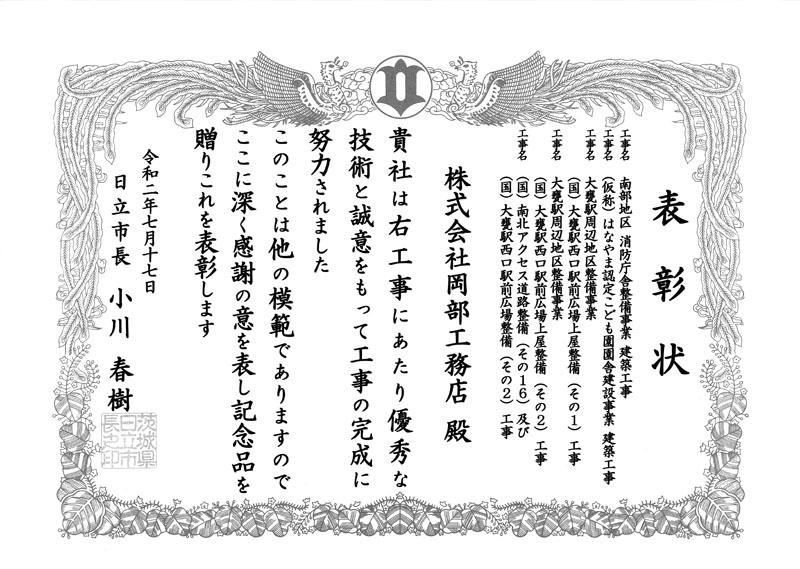 表彰状
工事名 南部地区 消防庁舎整備事業 建築工事
工事名 (仮称)はなやま認定こども園園舎建設事業 建築工事
工事名 大甕駅周辺地区整備事業
(国)大甕駅西口駅前広場上屋整備(その1)工事
工事名 大甕駅周辺地区整備事業
(国)大甕駅西口駅前広場上屋整備(その2)工事
工事名 (国)南北アクセス道路整備(その16)及び
(国)大甕駅西口駅前広場整備(その2)工事
株式会社岡部工務店 殿
貴社は右工事にあたり優秀な
技術と誠意をもって工事の完成に
努力されました
このことは他の模範でありますので
ここに深く感謝の意を表し記念品を
贈りこれを表彰します
令和二年七月十七日
日立市長 小川春樹
茨城県
日立市
長之印